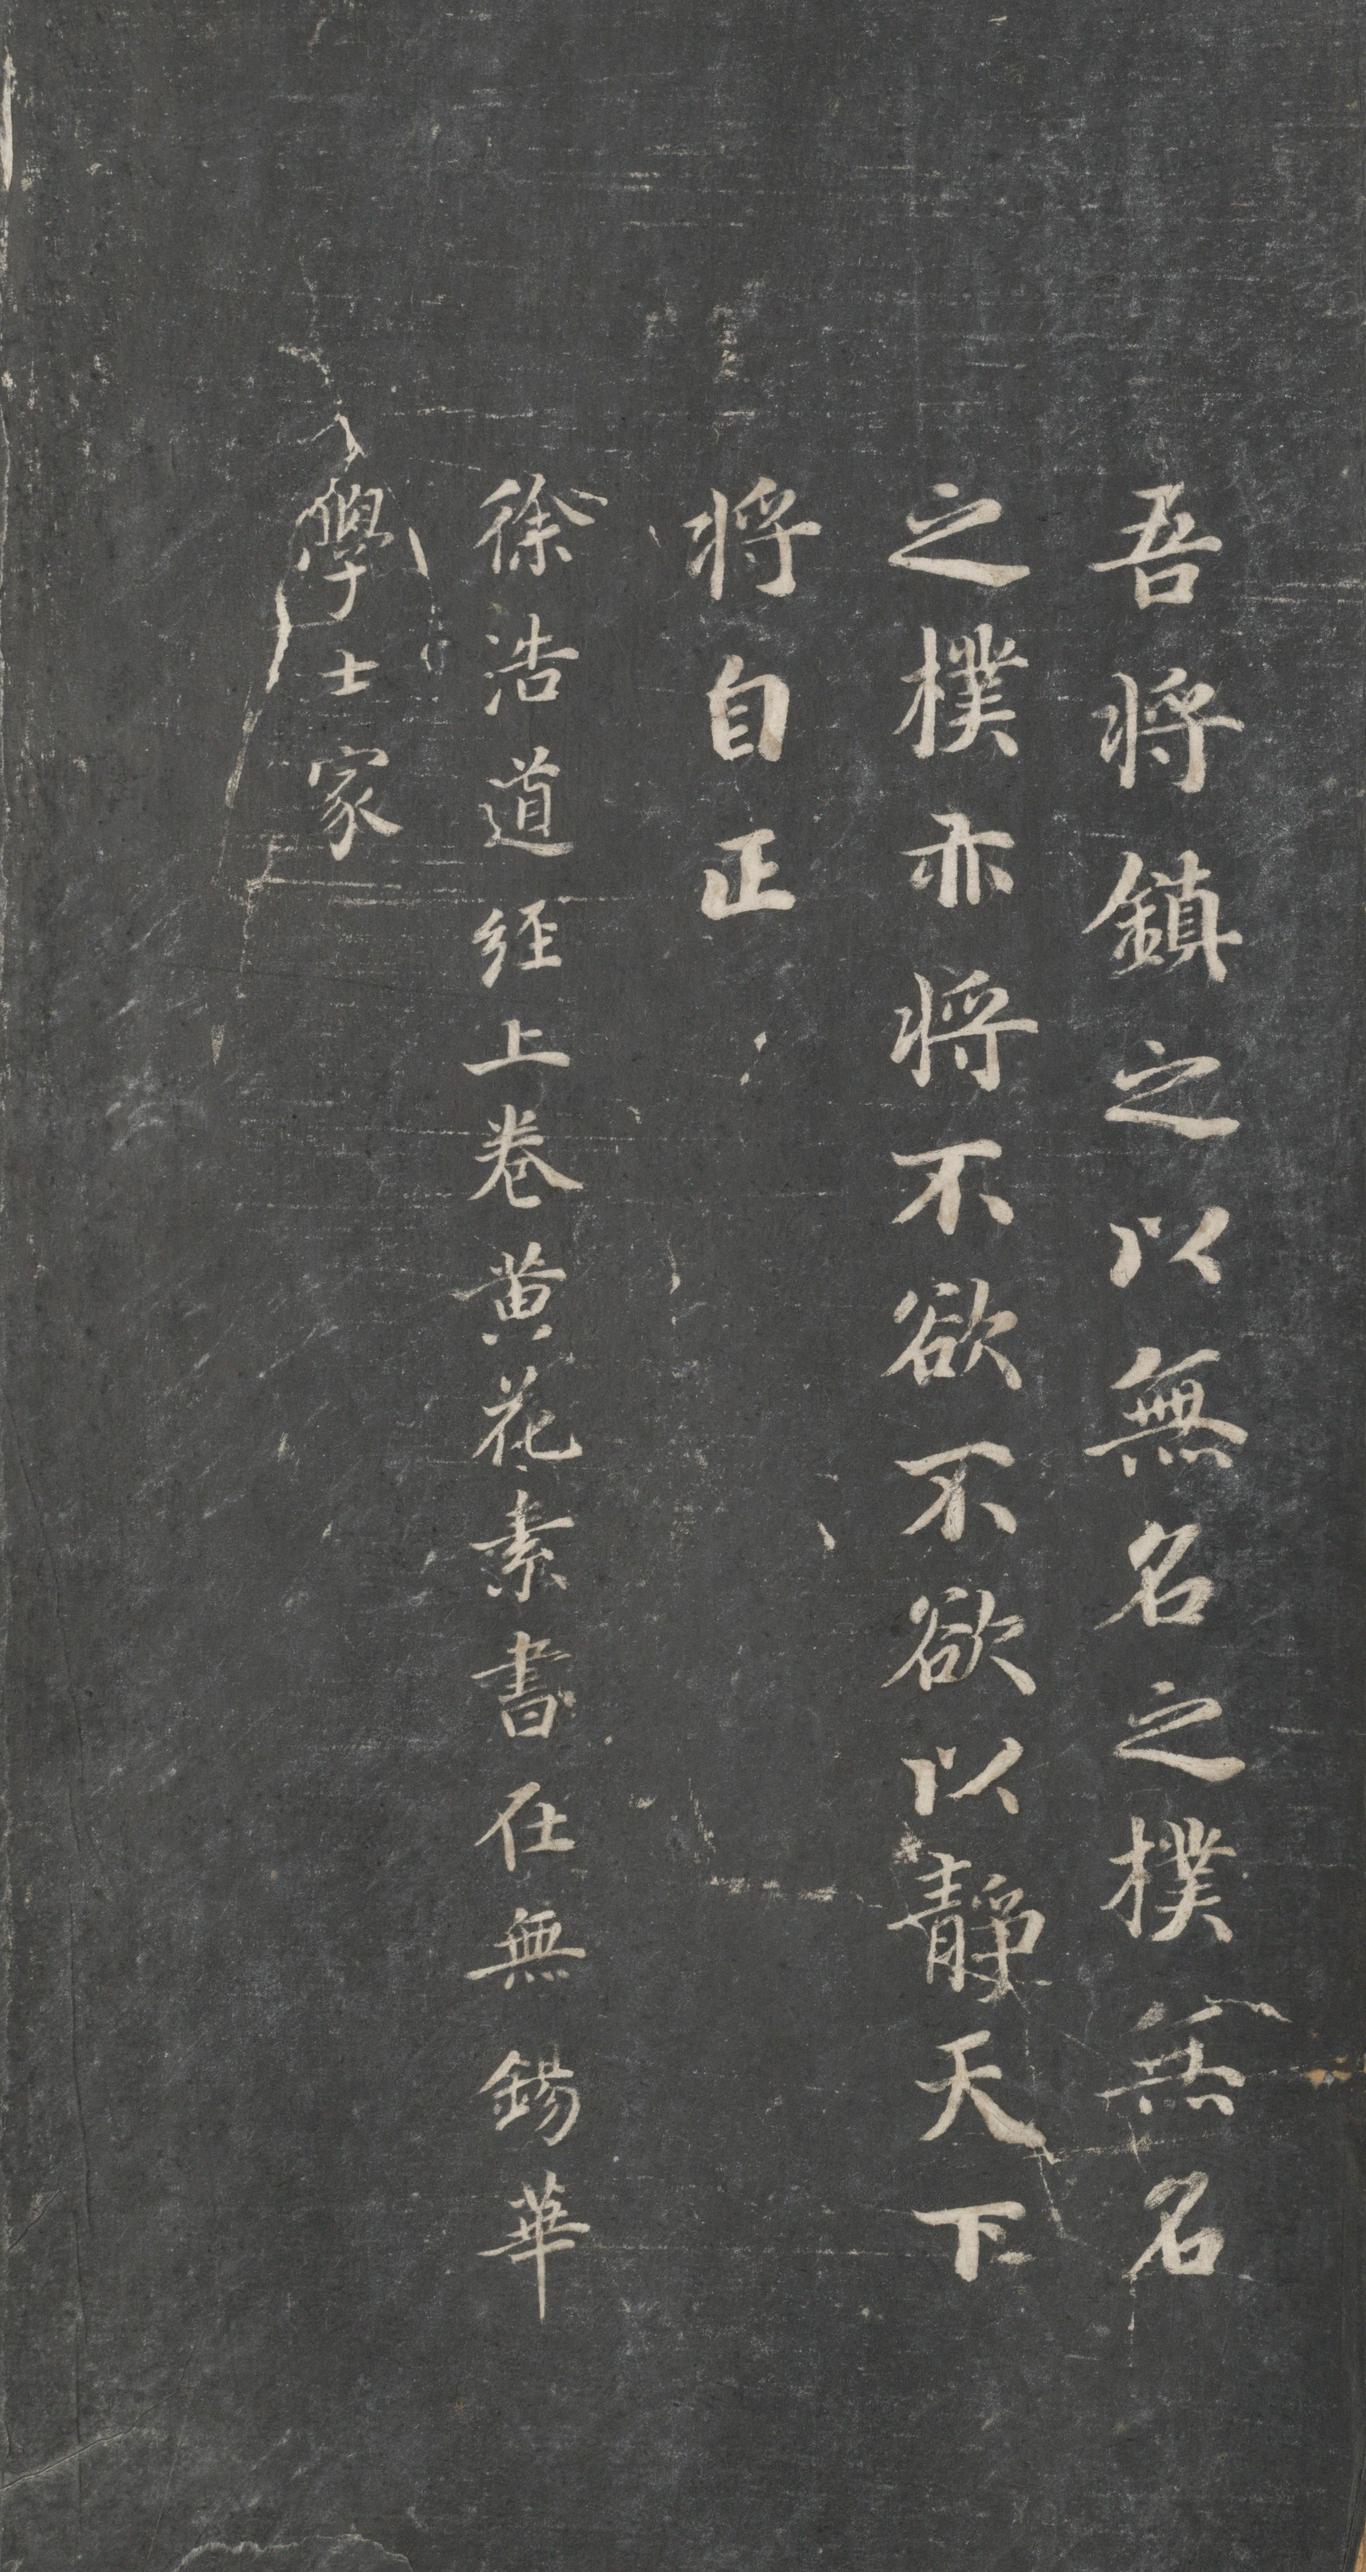 吾将鎮之以無名之樸無名
之樸亦将不欲不欲以靜天下
将自正
徐浩道經上卷黄花素書在無錫華
學士家